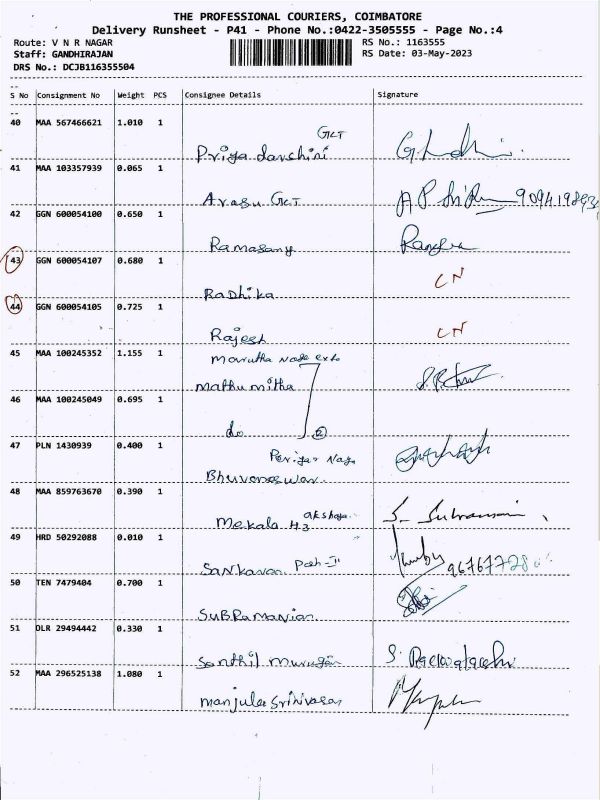 THE PROFESSIONAL COURIERS, COIMBATORE
Delivery Runsheet - P41 - Phone No.:0422-3505555 - Page No.:4
Route: V N R NAGAR
Staff: GANDHIRAJAN
DRS No.: DCJB116355504
RS No.: 1163555
RS Date: 03-May-2023
S No Consignment No Weight PCS Consignee Details Signature
40 MAA 567466621 1.010 1
GCT
Priya darshini
41 MAA 103357939 0.065 1
Arasu GCT
42 GGN 600054100 0.650 1
Ramasamy
43 GGN 600054107 0.680 1
Radhika CN
44 GGN 600054105 0.725 1
Rajesh CN
45 MAA 100245352 1.155 1
Marutha
Mathumitha
46 MAA 100245049 0.695 1
do 2
47 PLN 1430939 0.400 1
Periyar Naga
48 MAA 859763670 0.390 1
Mekala H3 akshaya
49 HRD 50292088 0.010 1
50 TEN 7479404 0.700 1
SUBRamanian
51 DLR 29494442 0.330 1
Senthil murugan
52 MAA 296525138 1.080 1
manjula srinivasan